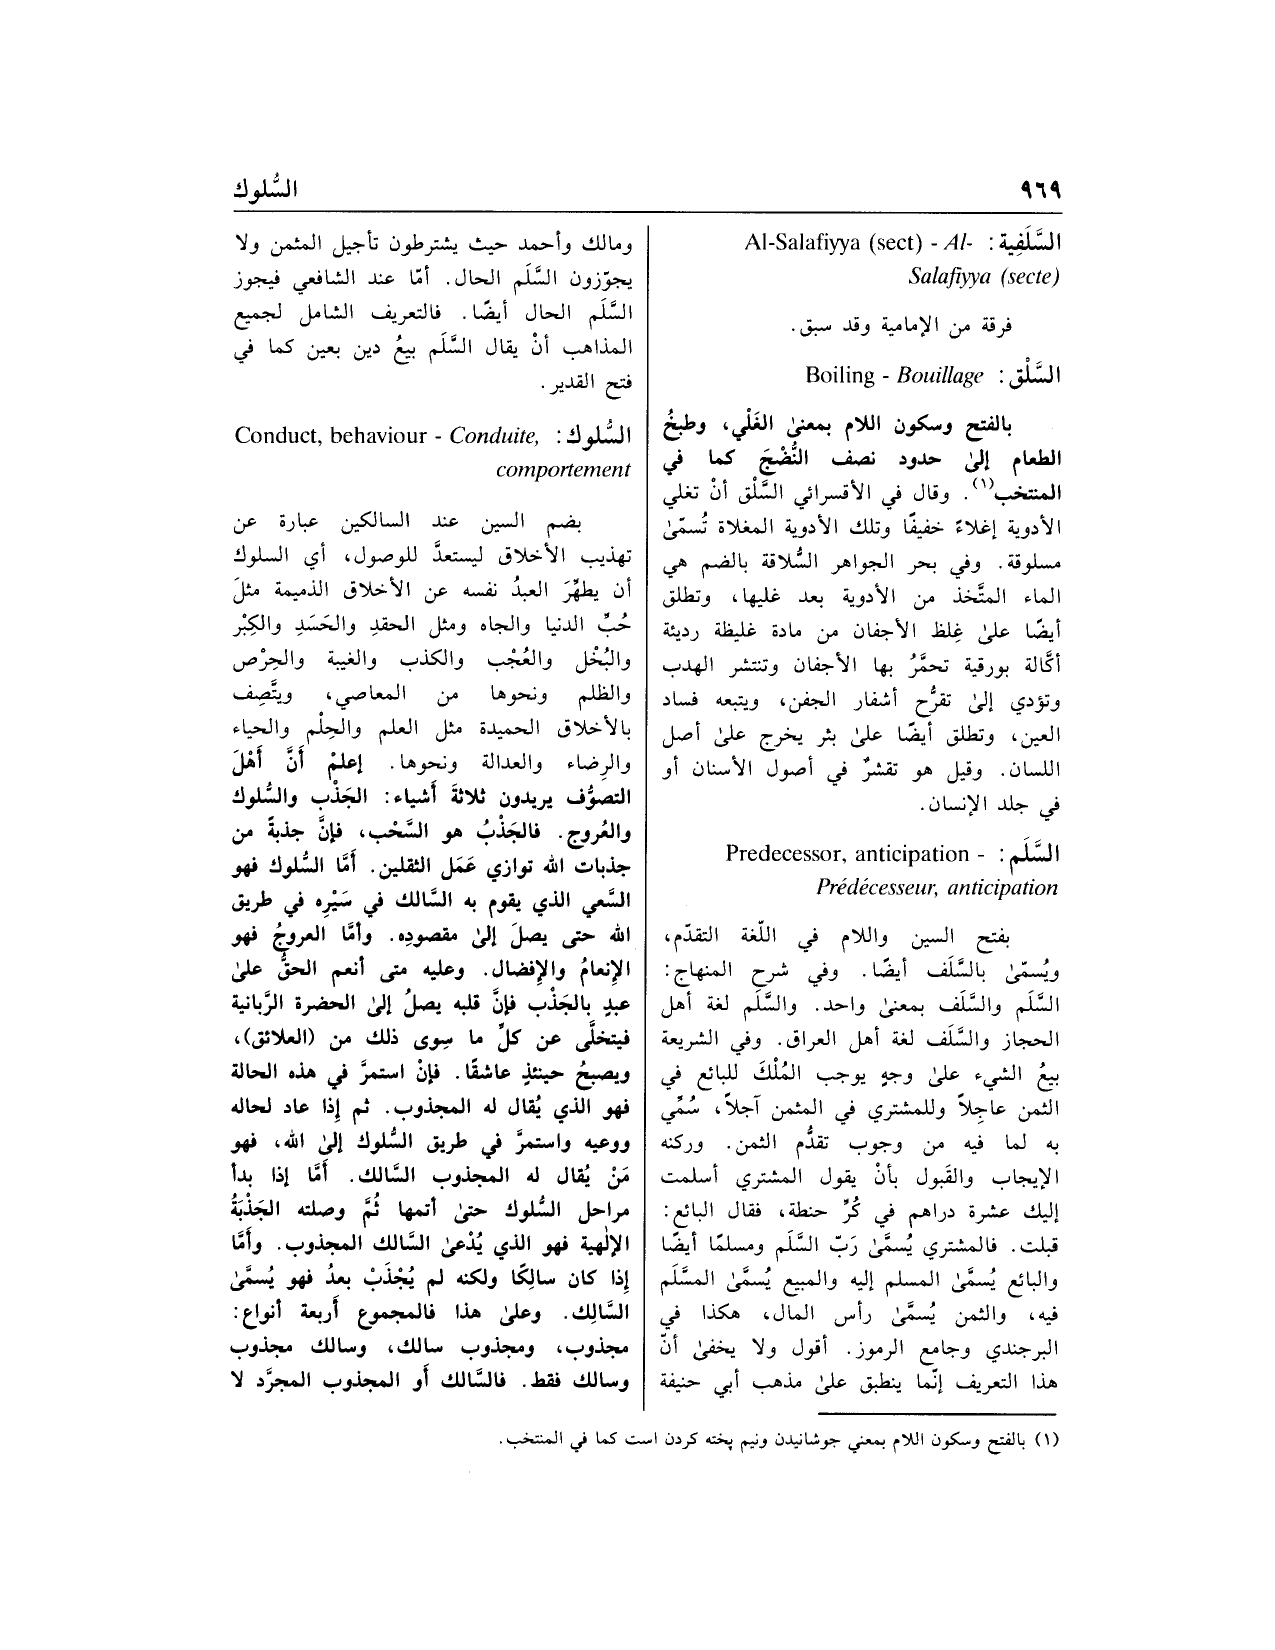 ٩٦٩
السُّلوك
السَّلَفِية: Al-Salafiyya (sect) - Al-
Salafiyya (secte)
فرقة من الإمامية وقد سبق.
السَّلْق: Boiling - Bouillage
بالفتح وسكون اللام بمعنىٰ الغَلْي، وطبخُ
الطعام إلىٰ حدود نصف النُّضْجَ كما في
المنتخب(١). وقال في الأقسرائي السَّلْق أنْ تغلي
الأدوية إغلاءً خفيفًا وتلك الأدوية المغلاة تُسمّىٰ
مسلوقة. وفي بحر الجواهر السُّلاقة بالضم هي
الماء المتَّخذ من الأدوية بعد غليها، وتطلق
أيضًا علىٰ غِلظ الأجفان من مادة غليظة رديئة
أكَّالة بورقية تحمَّرُ بها الأجفان وتنتشر الهدب
وتؤدي إلىٰ تقرُّح أشفار الجفن، ويتبعه فساد
العين، وتطلق أيضًا علىٰ بثر يخرج علىٰ أصل
اللسان. وقيل هو تقشرٌ في أصول الأسنان أو
في جلد الإنسان.
السَّلَم: Predecessor, anticipation -
Prédécesseur, anticipation
بفتح السين واللام في اللّغة التقدّم،
ويُسمّىٰ بالسَّلَف أيضًا. وفي شرح المنهاج:
السَّلَم والسَّلَف بمعنىٰ واحد. والسَّلَم لغة أهل
الحجاز والسَّلَف لغة أهل العراق. وفي الشريعة
بيعُ الشيء علىٰ وجهٍ يوجب المُلْكَ للبائع في
الثمن عاجِلاً وللمشتري في المثمن آجلاً، سُمِّي
به لما فيه من وجوب تقدُّم الثمن. وركنه
الإيجاب والقَبول بأنْ يقول المشتري أسلمت
إليك عشرة دراهم في كُرِّ حنطة، فقال البائع:
قبلت. فالمشتري يُسمَّىٰ رَبّ السَّلَم ومسلمًا أيضًا
والبائع يُسمَّىٰ المسلم إليه والمبيع يُسمَّىٰ المسَّلَم
فيه، والثمن يُسمَّىٰ رأس المال، هكذا في
البرجندي وجامع الرموز. أقول ولا يخفىٰ أنّ
هذا التعريف إنّما ينطبق علىٰ مذهب أبي حنيفة
ومالك وأحمد حيث يشترطون تأجيل المثمن ولا
يجوّزون السَّلَم الحال. أمّا عند الشافعي فيجوز
السَّلَم الحال أيضًا. فالتعريف الشامل لجميع
المذاهب أنْ يقال السَّلَم بيعُ دين بعين كما في
فتح القدير.
السُّلوك: Conduct, behaviour - Conduite,
comportement
بضم السين عند السالكين عبارة عن
تهذيب الأخلاق ليستعدَّ للوصول، أي السلوك
أن يطهِّرَ العبدُ نفسه عن الأخلاق الذميمة مثلَ
حُبِّ الدنيا والجاه ومثل الحقدِ والحَسَدِ والكِبْر
والبُخْل والعُجْب والكذب والغيبة والحِرْص
والظلم ونحوها من المعاصي، ويتَّصِف
بالأخلاق الحميدة مثل العلم والحِلْم والحياء
والرضاء والعدالة ونحوها. إعلمْ أنَّ أهْلَ
التصوُّف يريدون ثلاثةَ أشياء: الجَذْب والسُّلوك
والعُروج. فالجَذْبُ هو السَّحْب، فإنَّ جذبةً من
جذبات الله توازي عَمَل الثقلين. أمَّا السُّلوك فهو
السَّعي الذي يقوم به السَّالك في سَيْرِه في طريق
الله حتى يصلَ إلىٰ مقصودِه. وأمَّا العروجُ فهو
الإنعامُ والإفضال. وعليه متى أنعم الحقُّ علىٰ
عبدٍ بالجَذْب فإنَّ قلبه يصلُ إلىٰ الحضرة الرَّبانية
فيتخلَّى عن كلِّ ما سِوى ذلك من (العلائق)،
ويصبحُ حينئذٍ عاشقًا. فإنْ استمرَّ في هذه الحالة
فهو الذي يُقال له المجذوب. ثم إذا عاد لحاله
ووعيه واستمرَّ في طريق السُّلوك إلىٰ الله، فهو
مَنْ يُقال له المجذوب السَّالك. أمَّا إذا بدأ
مراحل السُّلوك حتىٰ أتمها ثُمَّ وصلته الجَذْبَةُ
الإلٰهية فهو الذي يُدْعىٰ السَّالك المجذوب. وأمَّا
إذا كان سالِكًا ولكنه لم يُجْذَبْ بعدُ فهو يُسمَّىٰ
السَّالِك. وعلىٰ هذا فالمجموع أربعة أنواع:
مجذوب، ومجذوب سالك، وسالك مجذوب
وسالك فقط. فالسَّالك أو المجذوب المجرَّد لا
(١) بالفتح وسكون اللام بمعني جوشانيدن ونيم پخته كردن است كما في المنتخب.